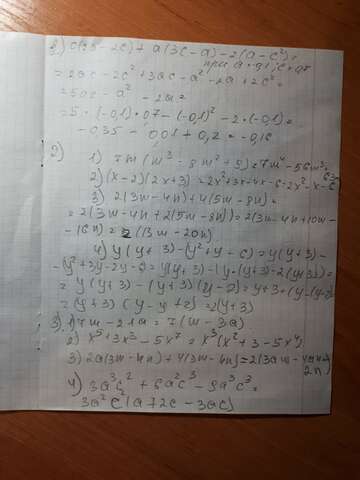 1) c(2a-2c) + a(3c-a)-2(a-c²)=
при a=-0,1; c=0,7
=2ac-2c²+3ac-a²-2a+2c²=
=5ac-a² -2a=
=5·(-0,1)·0,7-(-0,1)²-2·(-0,1)=
-0,35-0,01+0,2=-0,16
2)
1) 7m(m³-8m²+9)=7m⁴-56m³+63m
2)(x-2)(2x+3)=2x²+3x-4x-6=2x²-x-6
3) 2(3m-4n)+4(5m-8n)=
=2(3m-4n+2(5m-8n))=2(3m-4n+10m-
-16n)=2(13m-20n)
4) y(y+3)-(y²+y-6)=y(y+3)-
-(y²+3y-2y-6)=y(y+3)-(y·(y+3)-2(y+3))=
=y(y+3)-(y+3)(y-2)=y+3·(y-(y-2))=
=(y+3)·(y-y+2)=2(y+3)
3) 1) 7m-21a=7(m-3a)
2) x⁵+3x³-5x⁷=x³(x²+3-5x⁴)
3) 2a(3m-4n)+4(3m-4n)=2(3am-4an+
2n)
4) 3a³c²+6a²c³-9a³c³=
3a²c²(a+2c-3ac)